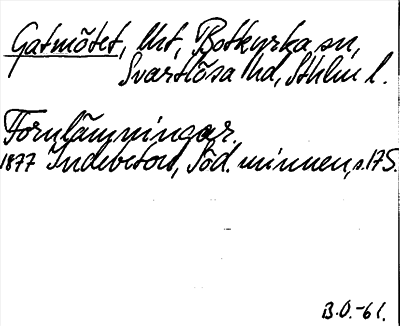 Gatmötet, Uht, Botkyrka sn,
Svartlösa hd, Sthlm l.
Fornlämningar.
1877 Indebetou, Söd. minnen, s. 175.
B.O.-61.